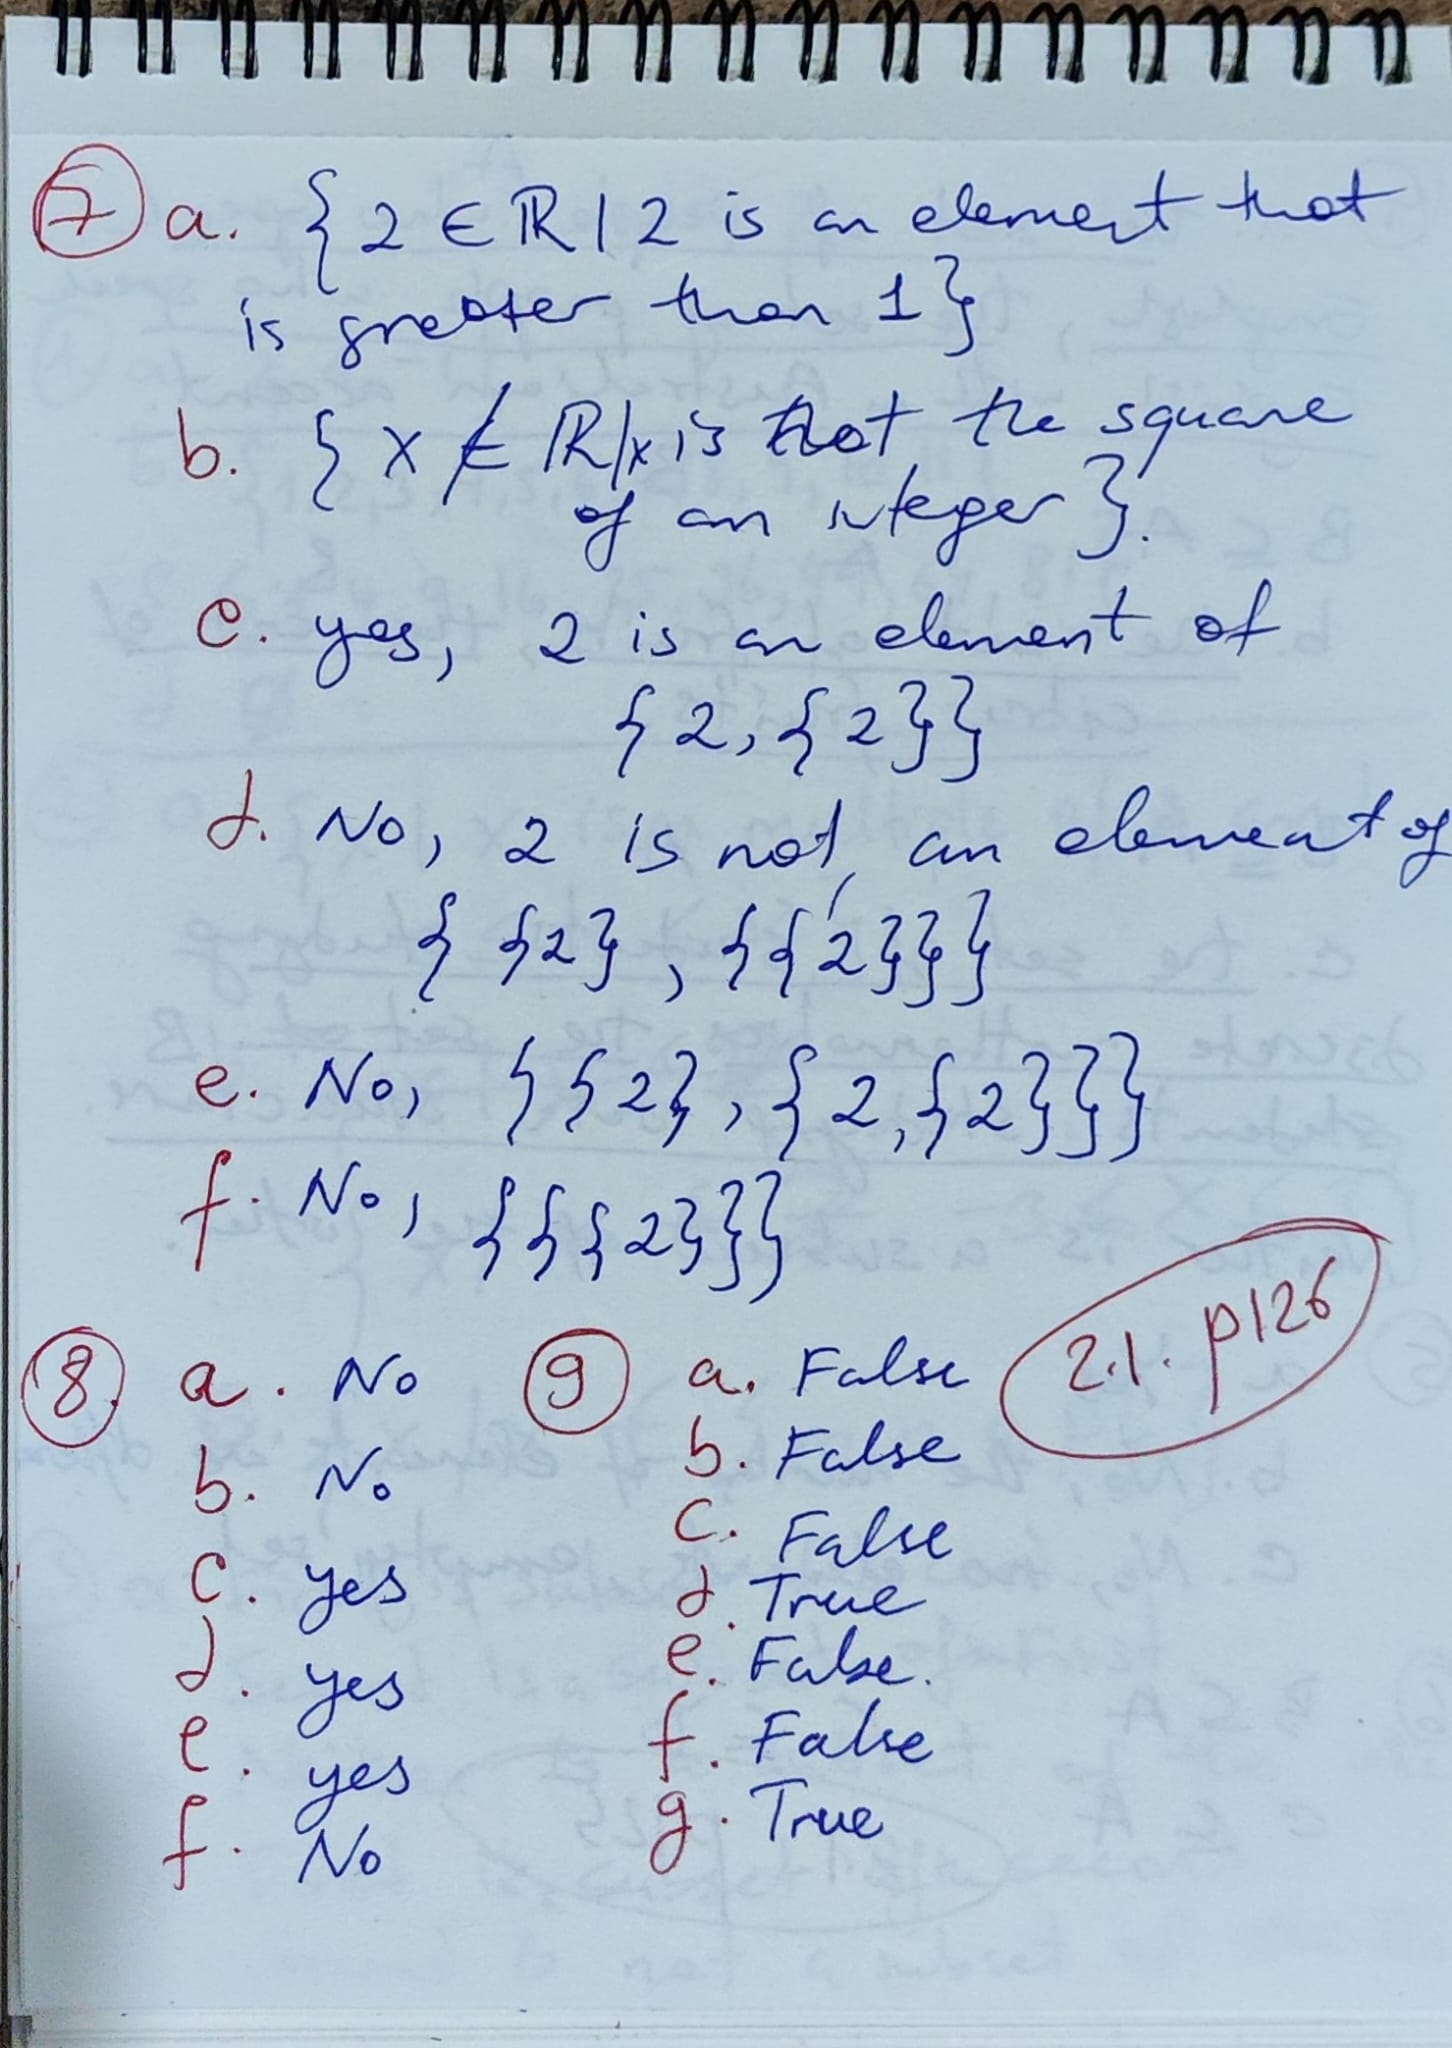 7 a. {2 ∈ ℝ | 2 is an element that
is greater than 1}
b. {x ∉ ℝ | x is that the square
of an integer}.
c. yes, 2 is an element of
{2, {2}}
d. No, 2 is not an element of
{{2}, {{2}}}
e. No, {{2}, {2, {2}}}
f. No, {{{2}}}
2.1. p126
8. a. No
b. No
c. yes
d. yes
e. yes
f. No
9 a. False
b. False
c. False
d. True
e. False.
f. False
g. True